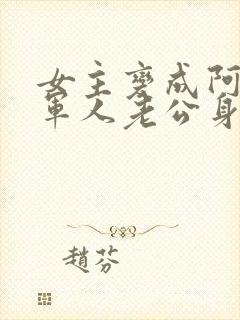 女主变成阿
军人老公身
趙芬